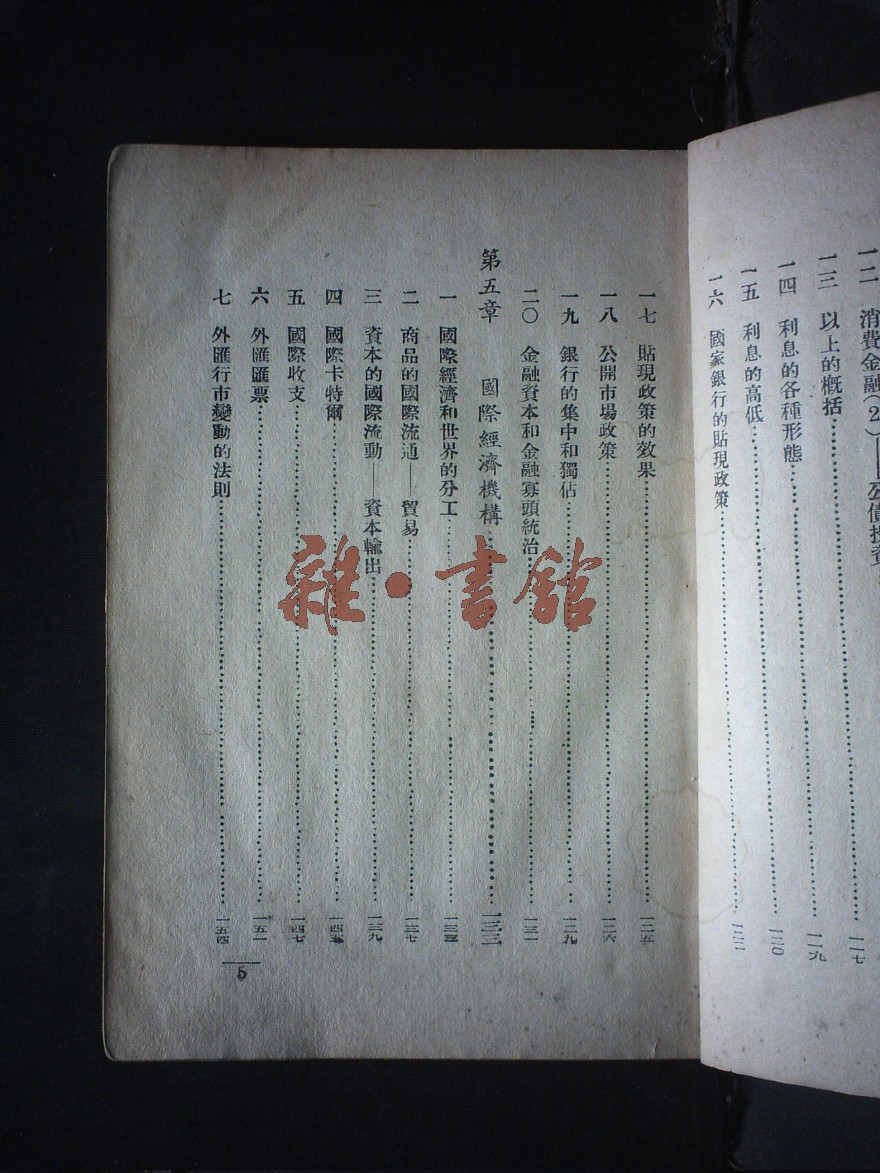 一二 消費金融(2)——公債投資
一三 以上的概括……一一七
一四 利息的各種形態……一一九
一五 利息的高低……一二〇
一六 國家銀行的貼現政策……一二二
一七 貼現政策的效果……一二五
一八 公開市場政策……一二六
一九 銀行的集中和獨佔……一二九
二〇 金融資本和金融寡頭統治……一三一
第五章 國際經濟機構……一三三
一 國際經濟和世界的分工……一三三
二 商品的國際流通——貿易……一三七
三 資本的國際流動——資本輸出……一三九
四 國際卡特爾……一四五
五 國際收支……一四七
六 外匯匯票……一五一
七 外匯行市變動的法則……一五四
5
雜·書館